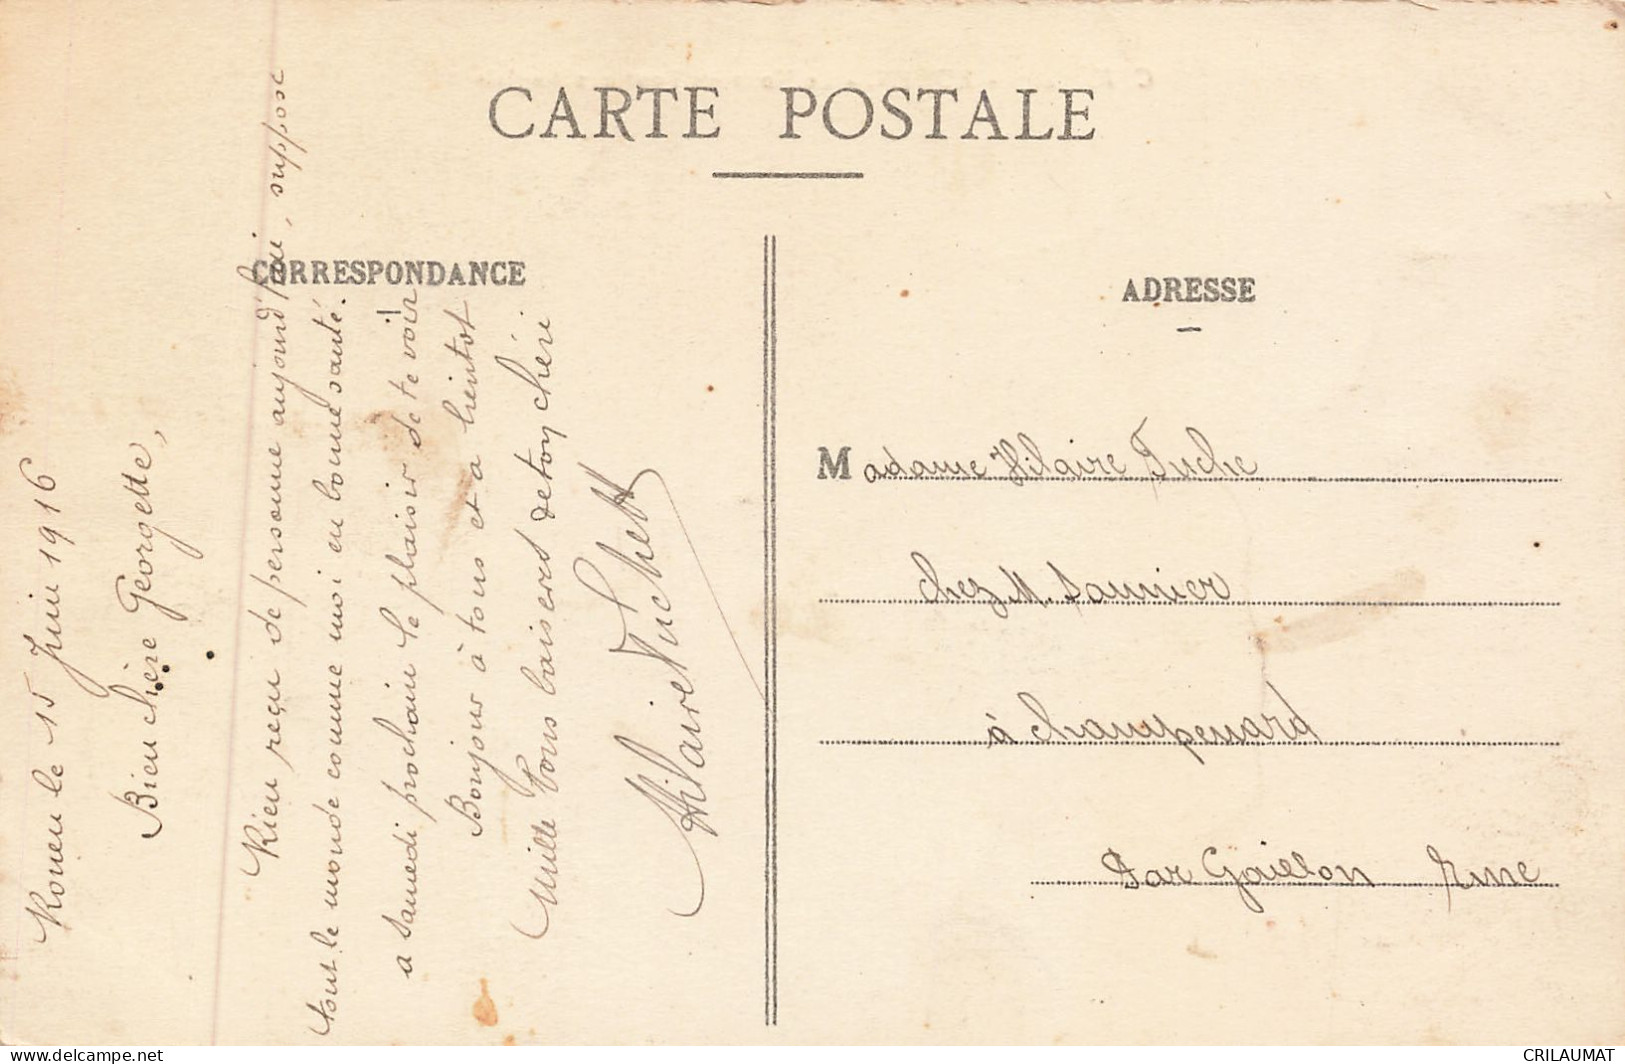 CARTE POSTALE
CORRESPONDANCE
Rouen le 15 Juin 1916
Bien chère Georgette,
Rien reçu de personne aujourd'hui, suppose
tout le monde comme moi en bonne santé.
a samedi prochain le plaisir de te voir
Bonjour à tous et a bientot
Mille bons baisers de ton chéri
Hilaire Tuchett
ADRESSE
Madame Hilaire Tuche
chez M. Saunier
à Champenard
Par Gaillon Eure
www.delcampe.net
CRILAUMAT